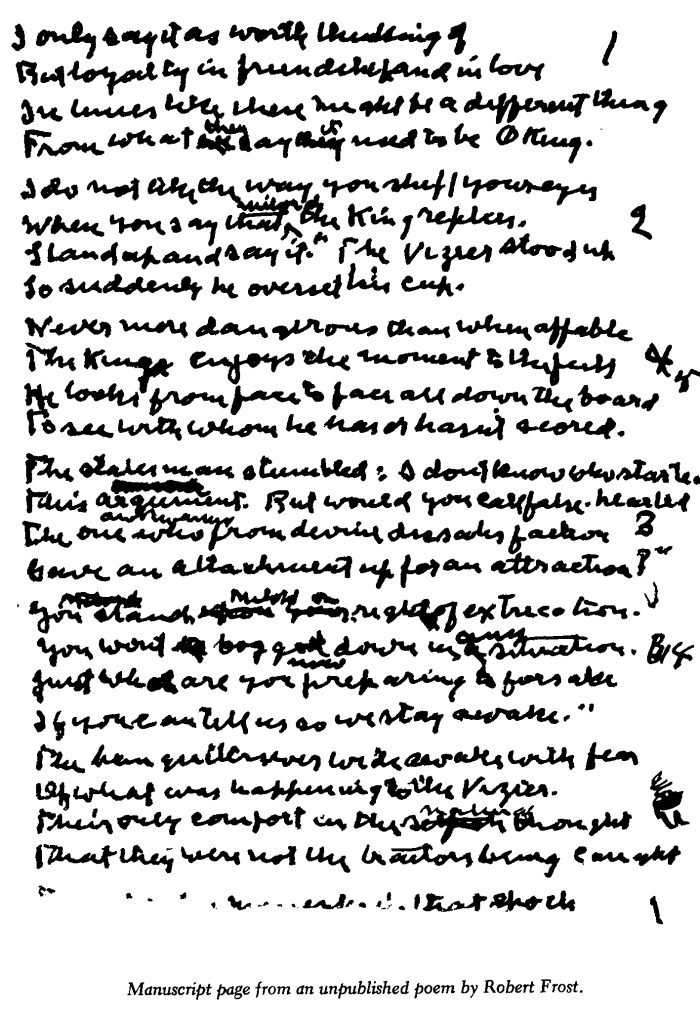 I only say it as worth thinking of 1
But loyalty in friendship and in love
In times like these might be a different thing
From what they say it used to be O King.
I do not like the way you shift your eyes
When you say that, milord the King replies. 2
Stand up and say it." The Vizier stood up
So suddenly he overset his cup.
Never more dangerous than when affable
The King enjoys the moment to the full
He looks from face to face all down the board
To see with whom he has or hasn't scored.
The statesman stumbled: I don't know who started
This argument. But would you call false-hearted
The one who from devine dissatisfaction 3
Gave an attachment up for an attraction?"
You stand milord on right of extrication.
You won't bog down in any situation.
Just who are you now preparing to forsake
If you can tell us so we stay awake."
The banqueters were wide awake with fear
Of what was happening to the Vizier.
Their only comfort in the thought
That they were not the traitors being caught
that epoch 1
Manuscript page from an unpublished poem by Robert Frost.